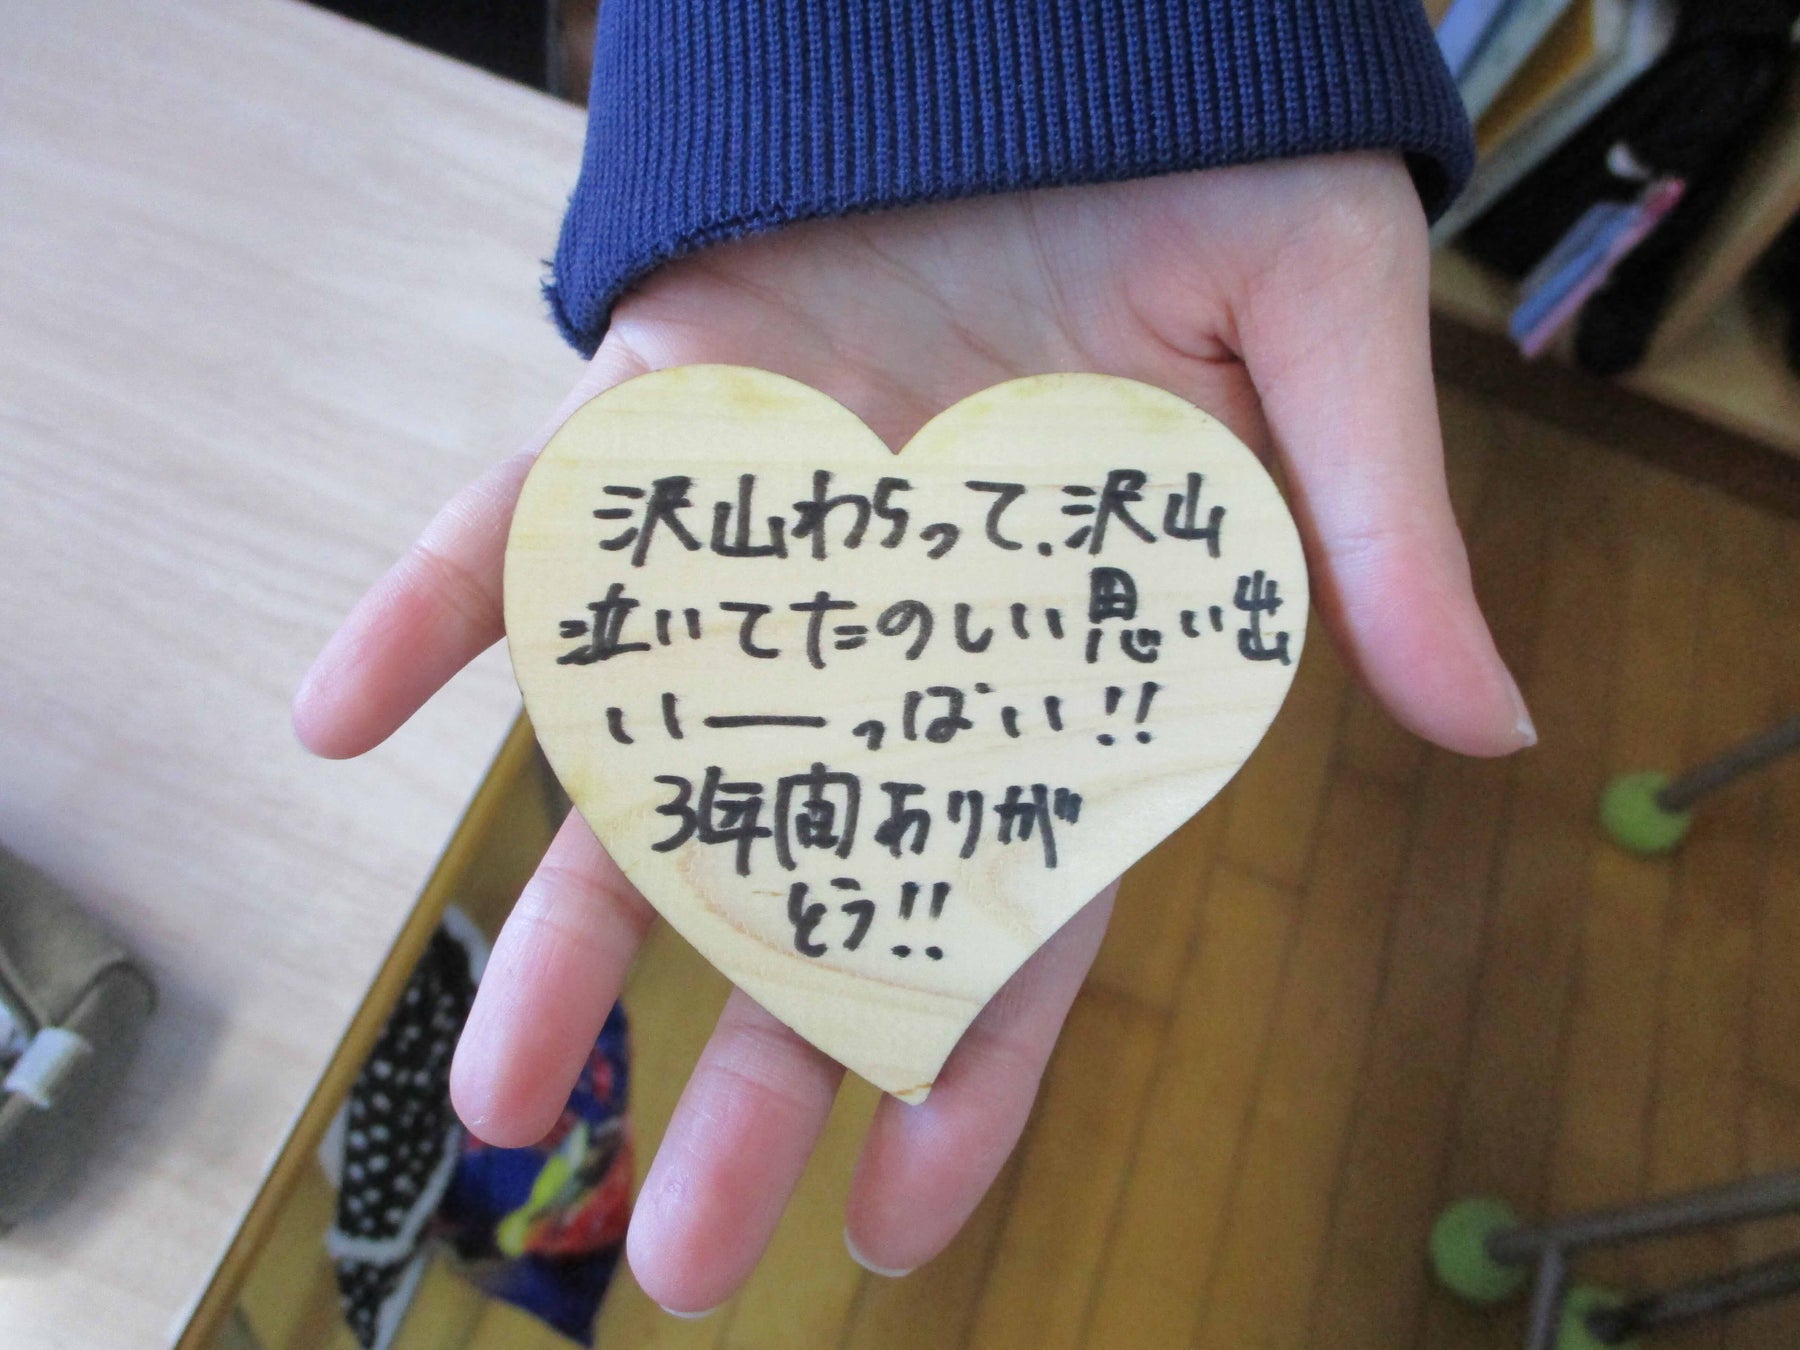 沢山わらって、沢山
泣いてたのしい思い出
いーっぱい!!
3年間ありが
とう!!